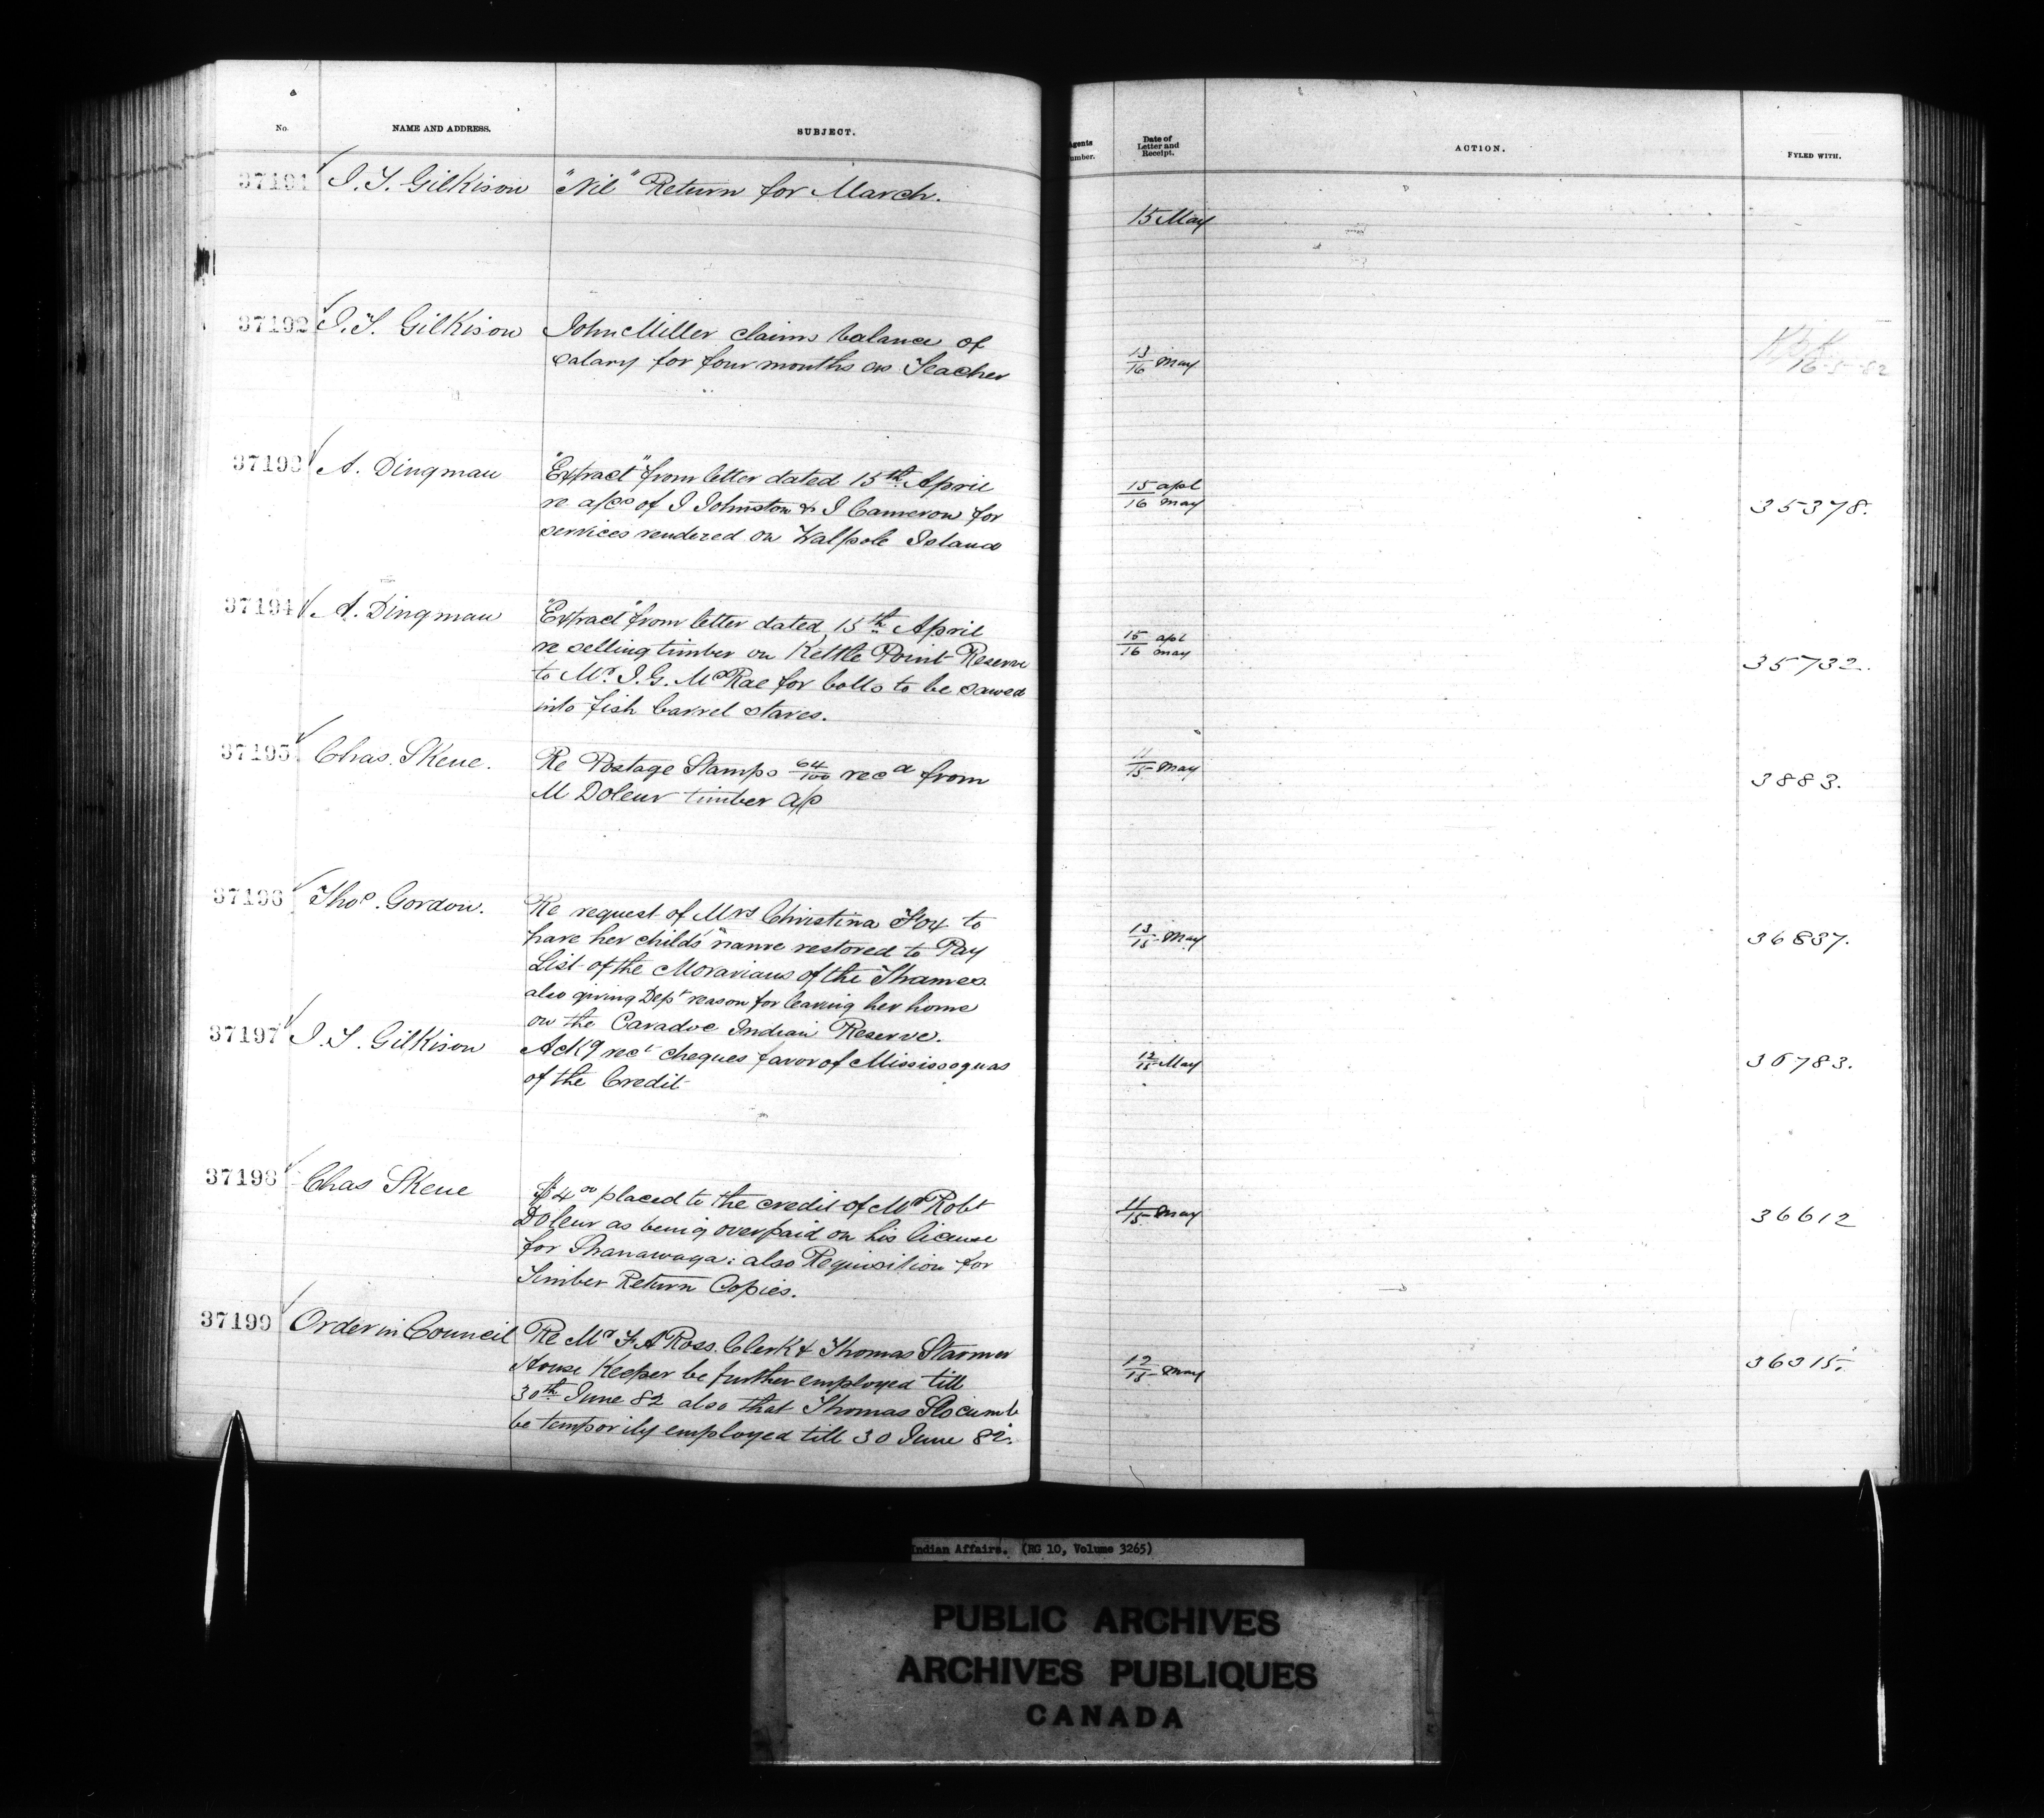 No. NAME AND ADDRESS. SUBJECT.
37191 J. T. Gilkison "Nil" Return for March.
37192 J. T. Gilkison John Miller claims balance of
salary for four months as Teacher
37193 A. Dingman "Extract" from letter dated 15th April
re a/cs of J Johnston & J Cameron for
services rendered on Walpole Island
37194 A. Dingman "Extract" from letter dated 15th April
re selling timber on Kettle Point Reserve
to Mr. J. G. McRae for bolts to be sawed
into fish barrel staves.
37195 Chas. Skene. Re Postage Stamps 64/100 recd from
M Doleur timber a/c
37196 Thos. Gordon. Re request of Mrs Christina Fox to
have her childs' name restored to Pay
List of the Moravians of the Thames.
also giving Dept reason for leaving her home
on the Caradoc Indian Reserve.
37197 J. T. Gilkison Ackg rect cheques favor of Mississaguas
of the Credit
37198 Chas Skene $4 00 placed to the credit of Mr Robt
Doleur as being overpaid on his license
for Shanawaga: also Requisition for
Timber Return Copies.
37199 Order in Council Re Mr F A Ross. Clerk & Thomas Starmer
House Keeper be further employed till
30th June 82 also that Thomas Slocumb
be temporily employed till 30 June 82.
Agents Number. Date of Letter and Receipt. ACTION. FYLED WITH.
15 May
13/16 May 16-5-82
15 apl
16 may 35378.
15 apl
16 may 35732.
11/15 May 3883.
13/15 May 36837.
12/15 May 36783.
11/15 May 36612
12/15 May 36315.
Indian Affairs. (RG 10, Volume 3265)
PUBLIC ARCHIVES
ARCHIVES PUBLIQUES
CANADA